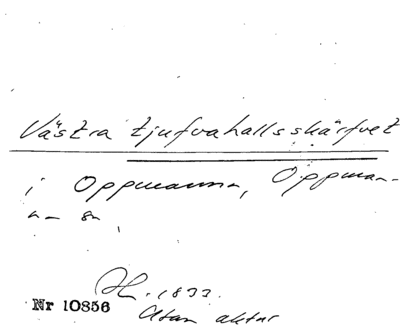 Västra tjufvahallsskärfvet
i Oppmanna, Oppman-
na sn
H. 1833.
Nr 10856
Utan aktnr